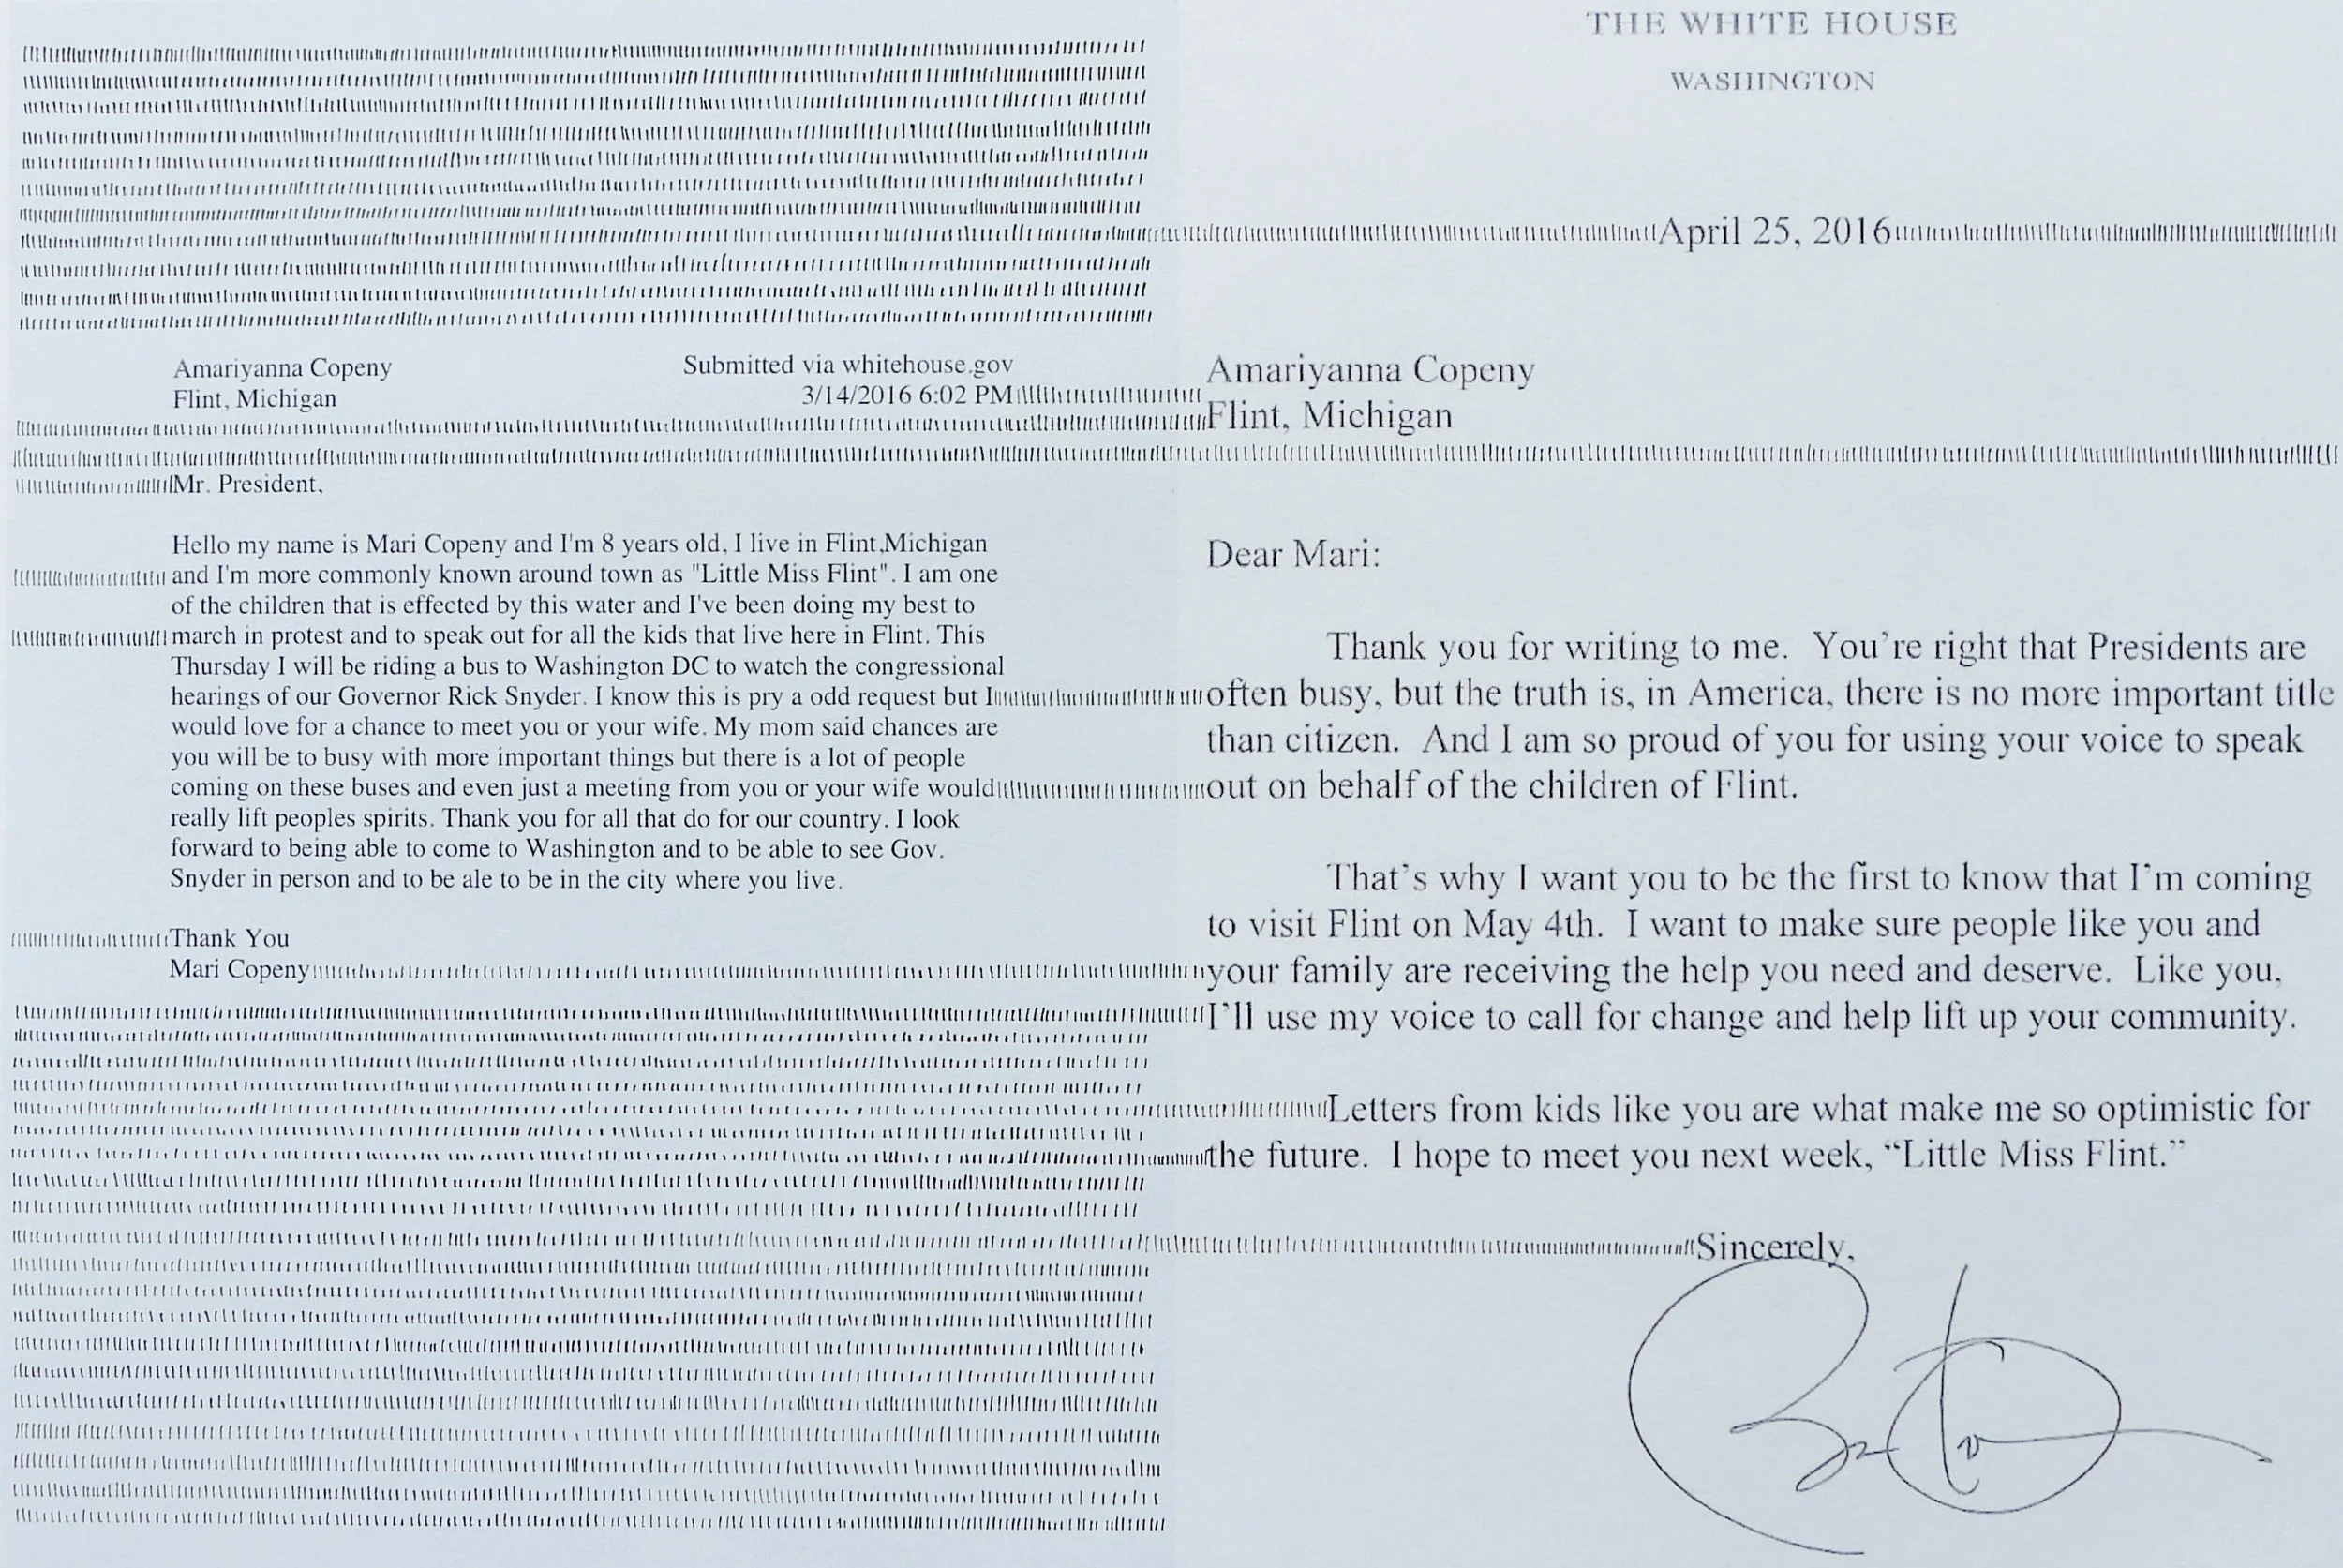 Amariyanna Copeny
Flint, Michigan
Submitted via whitehouse.gov
3/14/2016 6:02 PM
Mr. President,
Hello my name is Mari Copeny and I'm 8 years old, I live in Flint,Michigan
and I'm more commonly known around town as "Little Miss Flint". I am one
of the children that is effected by this water and I've been doing my best to
march in protest and to speak out for all the kids that live here in Flint. This
Thursday I will be riding a bus to Washington DC to watch the congressional
hearings of our Governor Rick Snyder. I know this is pry a odd request but I
would love for a chance to meet you or your wife. My mom said chances are
you will be to busy with more important things but there is a lot of people
coming on these buses and even just a meeting from you or your wife would
really lift peoples spirits. Thank you for all that do for our country. I look
forward to being able to come to Washington and to be able to see Gov.
Snyder in person and to be ale to be in the city where you live.
Thank You
Mari Copeny
THE WHITE HOUSE
WASHINGTON
April 25, 2016
Amariyanna Copeny
Flint, Michigan
Dear Mari:
Thank you for writing to me. You're right that Presidents are
often busy, but the truth is, in America, there is no more important title
than citizen. And I am so proud of you for using your voice to speak
out on behalf of the children of Flint.
That's why I want you to be the first to know that I'm coming
to visit Flint on May 4th. I want to make sure people like you and
your family are receiving the help you need and deserve. Like you,
I'll use my voice to call for change and help lift up your community.
Letters from kids like you are what make me so optimistic for
the future. I hope to meet you next week, “Little Miss Flint.”
Sincerely,